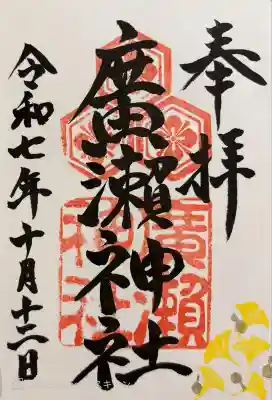 奉拝
廣瀬神社
廣瀬神社
令和七年十月十二日